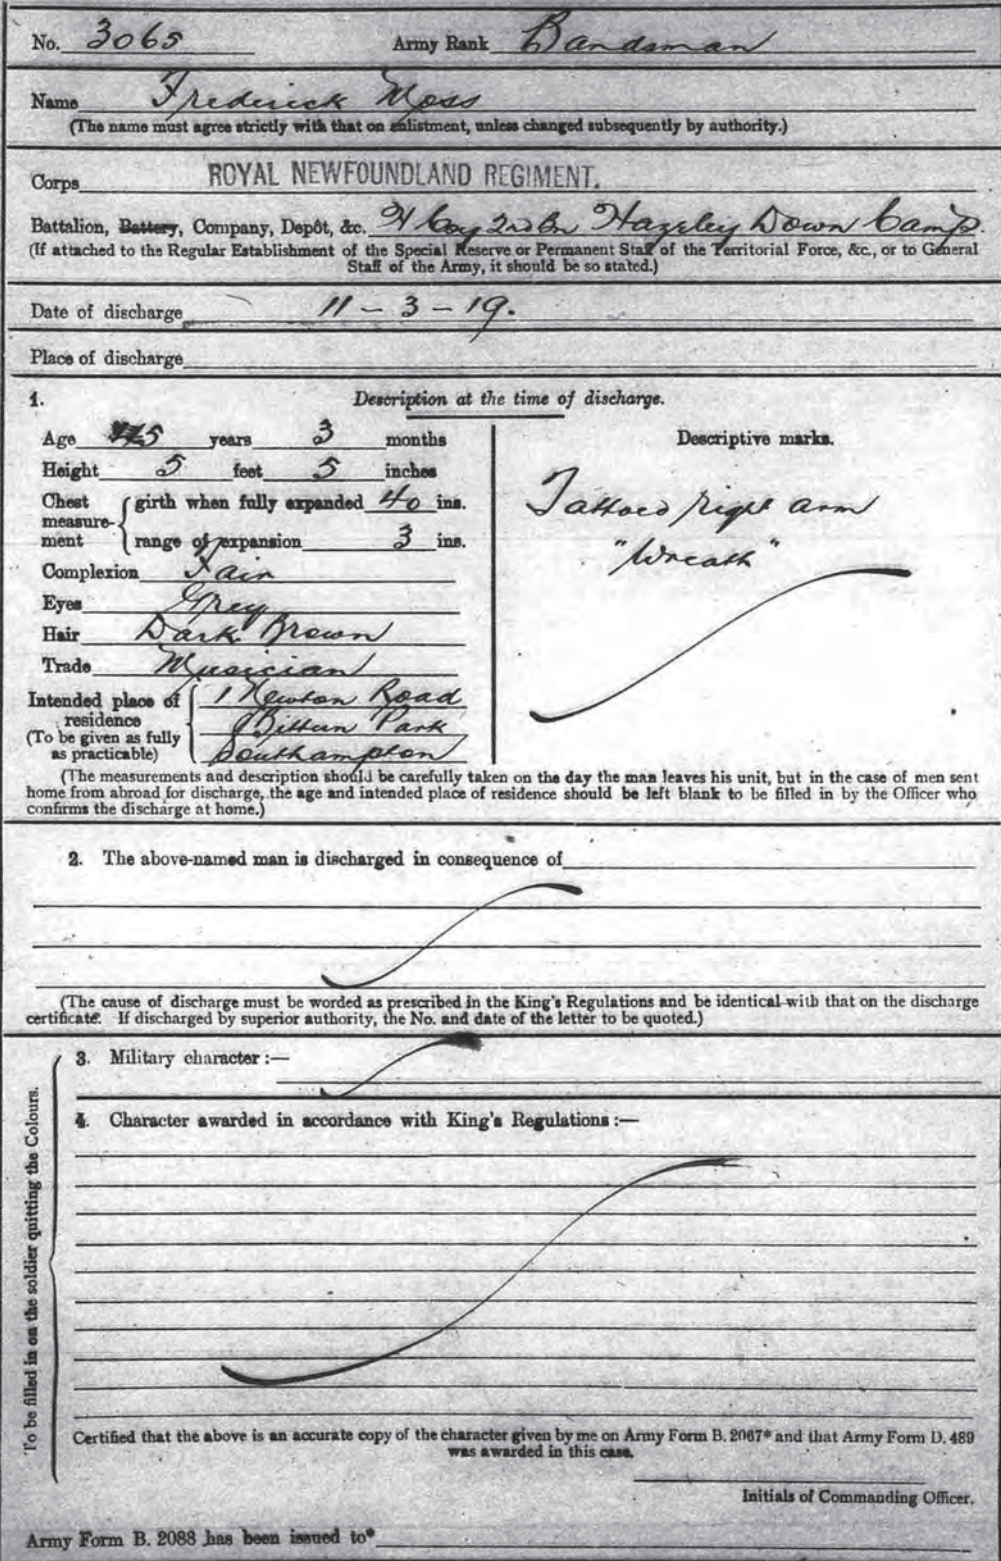 No. 3065 Army Rank Bandsman
Name Frederick Moss
(The name must agree strictly with that on enlistment, unless changed subsequently by authority.)
Corps ROYAL NEWFOUNDLAND REGIMENT.
Battalion, Battery, Company, Depôt, &c. H Coy 2nd Bn Hazeley Down Camp.
(If attached to the Regular Establishment of the Special Reserve or Permanent Staff of the Territorial Force, &c., or to General
Staff of the Army, it should be so stated.)
Date of discharge 11 - 3 - 19.
Place of discharge
1. Description at the time of discharge.
Age years 3 months
Height 5 feet 5 inches
Chest measure-ment girth when fully expanded 40 ins.
range of expansion 3 ins.
Complexion Fair
Eyes Grey
Hair Dark Brown
Trade Musician
Intended place of residence (To be given as fully as practicable) 1 Newton Road
Park
Southampton
Descriptive marks.
Tattoed right arm
"Wreath"
(The measurements and description should be carefully taken on the day the man leaves his unit, but in the case of men sent
home from abroad for discharge, the age and intended place of residence should be left blank to be filled in by the Officer who
confirms the discharge at home.)
2. The above-named man is discharged in consequence of
(The cause of discharge must be worded as prescribed in the King's Regulations and be identical with that on the discharge
certificate. If discharged by superior authority, the No. and date of the letter to be quoted.)
To be filled in on the soldier quitting the Colours.
3. Military character :—
4. Character awarded in accordance with King's Regulations :—
Certified that the above is an accurate copy of the character given by me on Army Form B. 2067* and that Army Form D. 489
was awarded in this case.
Initials of Commanding Officer.
Army Form B. 2088 has been issued to*